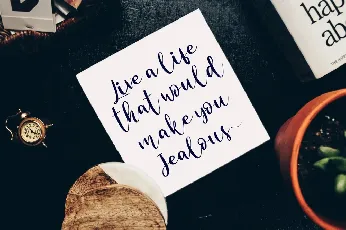 Live a life
that would
make you
Jealous...
hap
ab